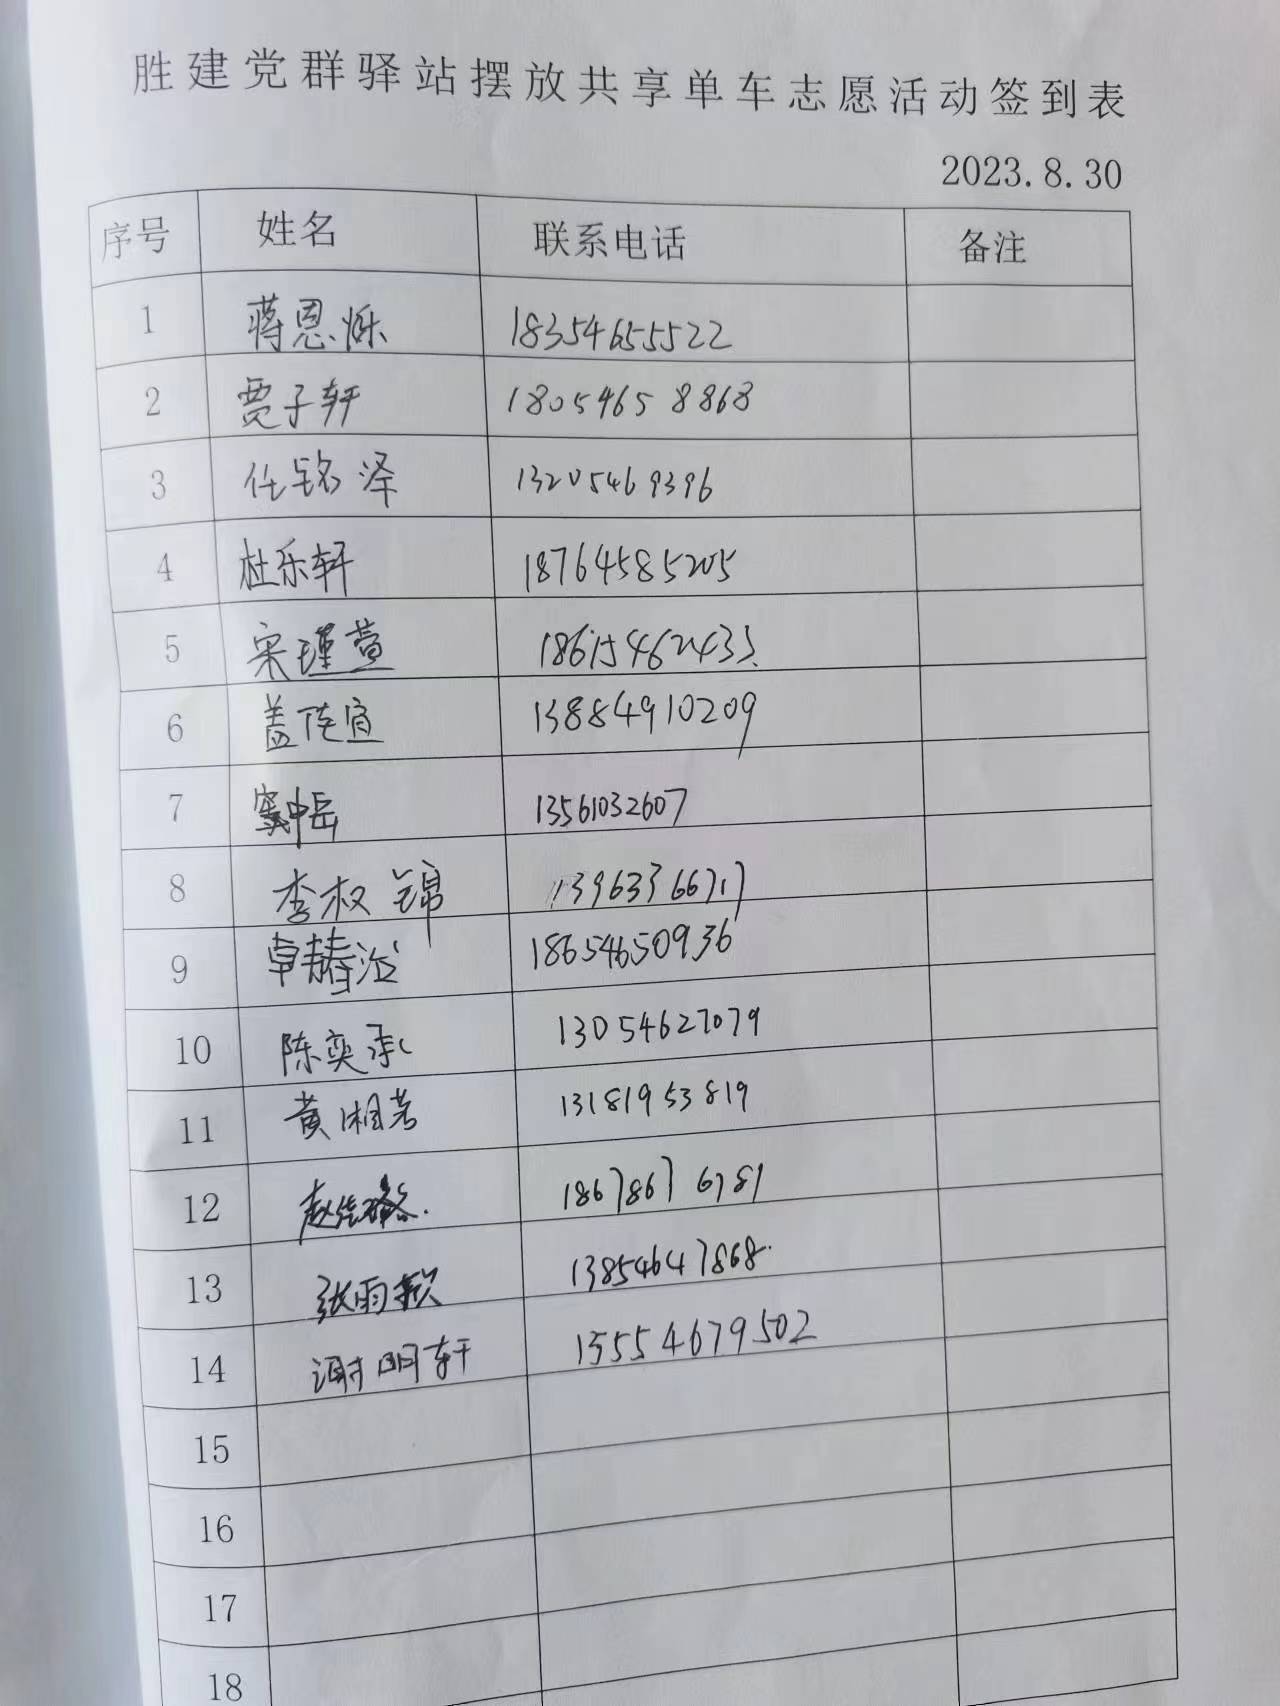 胜建党群驿站摆放共享单车志愿活动签到表
2023.8.30
序号 姓名 联系电话 备注
1 蒋恩烁 18354655522
2 贾子轩 18054658868
3 任铭泽 13205469396
4 杜乐轩 18764585205
5 宋瑾萱 18615462433
6 盖佳宜 13884910209
7 窦中岳 13561032607
8 李权锦 13963366717
9 18654650936
10 陈奕承 13054627079
11 黄湘茗 13181953819
12 18678676781
13 张雨歆 13854647868
14 谢明轩 15554679502
15
16
17
18